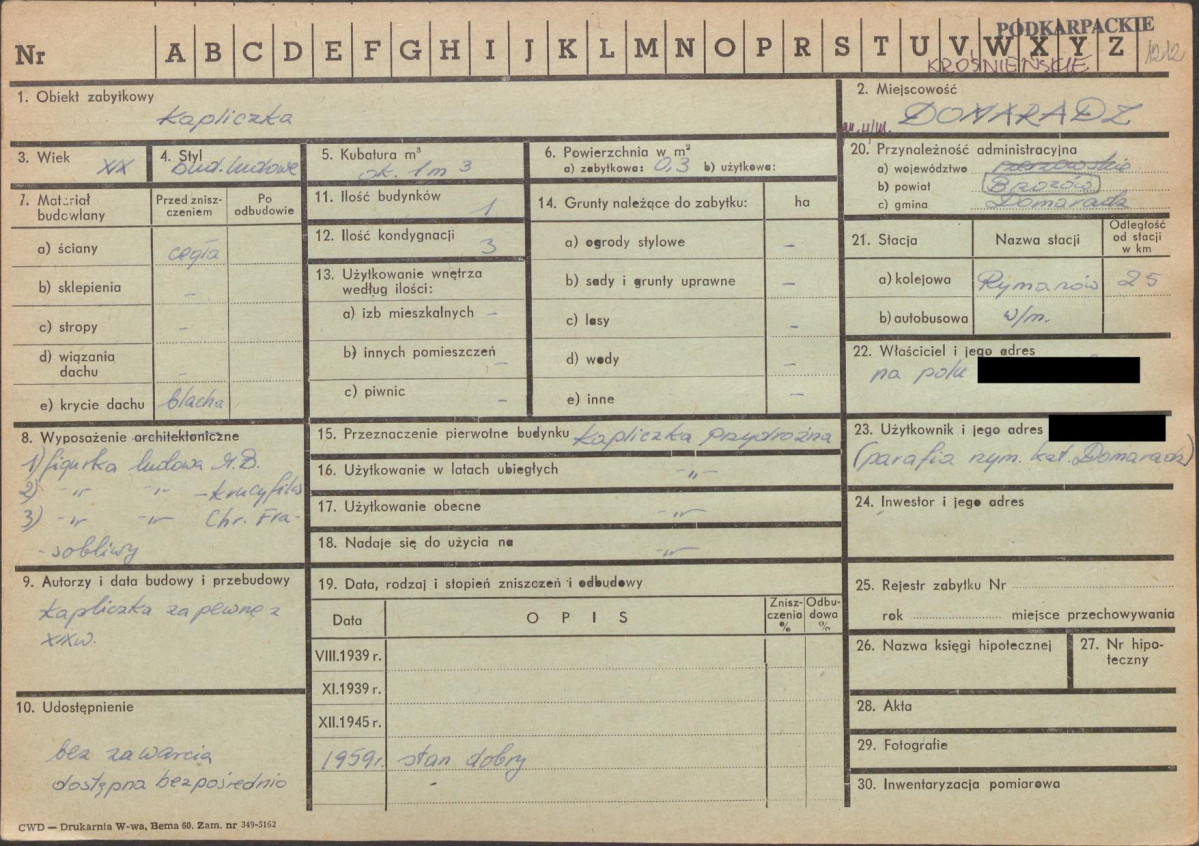 Nr A B C D E F G H I J K L M N O P R S T U V W X Y Z
PODKARPACKIE
KROŚNIEŃSKIE
1212
1. Obiekt zabytkowy
Kapliczka
2. Miejscowość
DOMARADZ
3. Wiek
XIX
4. Styl
bud. ludowe
5. Kubatura m³
ok. 1 m 3
6. Powierzchnia w m²
a) zabytkowa: 0,3 b) użytkowa:
20. Przynależność administracyjna
a) województwo rzeszowskie
b) powiat Brzozów
c) gmina Domaradz
7. Materiał budowlany
Przed zniszczeniem
Po odbudowie
a) ściany cegła
b) sklepienia –
c) stropy –
d) wiązania dachu –
e) krycie dachu blacha
11. Ilość budynków 1
12. Ilość kondygnacji 3
13. Użytkowanie wnętrza
według ilości:
a) izb mieszkalnych –
b) innych pomieszczeń –
c) piwnic –
14. Grunty należące do zabytku: ha
a) ogrody stylowe –
b) sady i grunty uprawne –
c) lasy –
d) wody –
e) inne –
21. Stacja
Nazwa stacji
Odległość od stacji w km
a) kolejowa Rymanów 25
b) autobusowa w/m.
22. Właściciel i jego adres
na polu
8. Wyposażenie architektoniczne
1) figurka ludowa M.B.
2) -"- -"- - krucyfiks
3) -"- -"- Chr. Fra-
-sobliwy
15. Przeznaczenie pierwotne budynku Kapliczka przydrożna
16. Użytkowanie w latach ubiegłych -"-
17. Użytkowanie obecne -"-
18. Nadaje się do użycia na -"-
23. Użytkownik i jego adres
(parafia rzym. kat. Domaradz)
24. Inwestor i jego adres
9. Autorzy i data budowy i przebudowy
Kapliczka zapewne z
XIX w.
19. Data, rodzaj i stopień zniszczeń i odbudowy
Data
O P I S
Zniszczenia %
Odbudowa %
VIII.1939 r.
XI.1939 r.
XII.1945 r.
1959r. stan dobry
25. Rejestr zabytku Nr
rok miejsce przechowywania
26. Nazwa księgi hipotecznej
27. Nr hipoteczny
28. Akta
29. Fotografie
30. Inwentaryzacja pomiarowa
10. Udostępnienie
bez zawarcia
dostępna bezpośrednio
CWD — Drukarnia W-wa, Bema 60. Zam. nr 349-5162